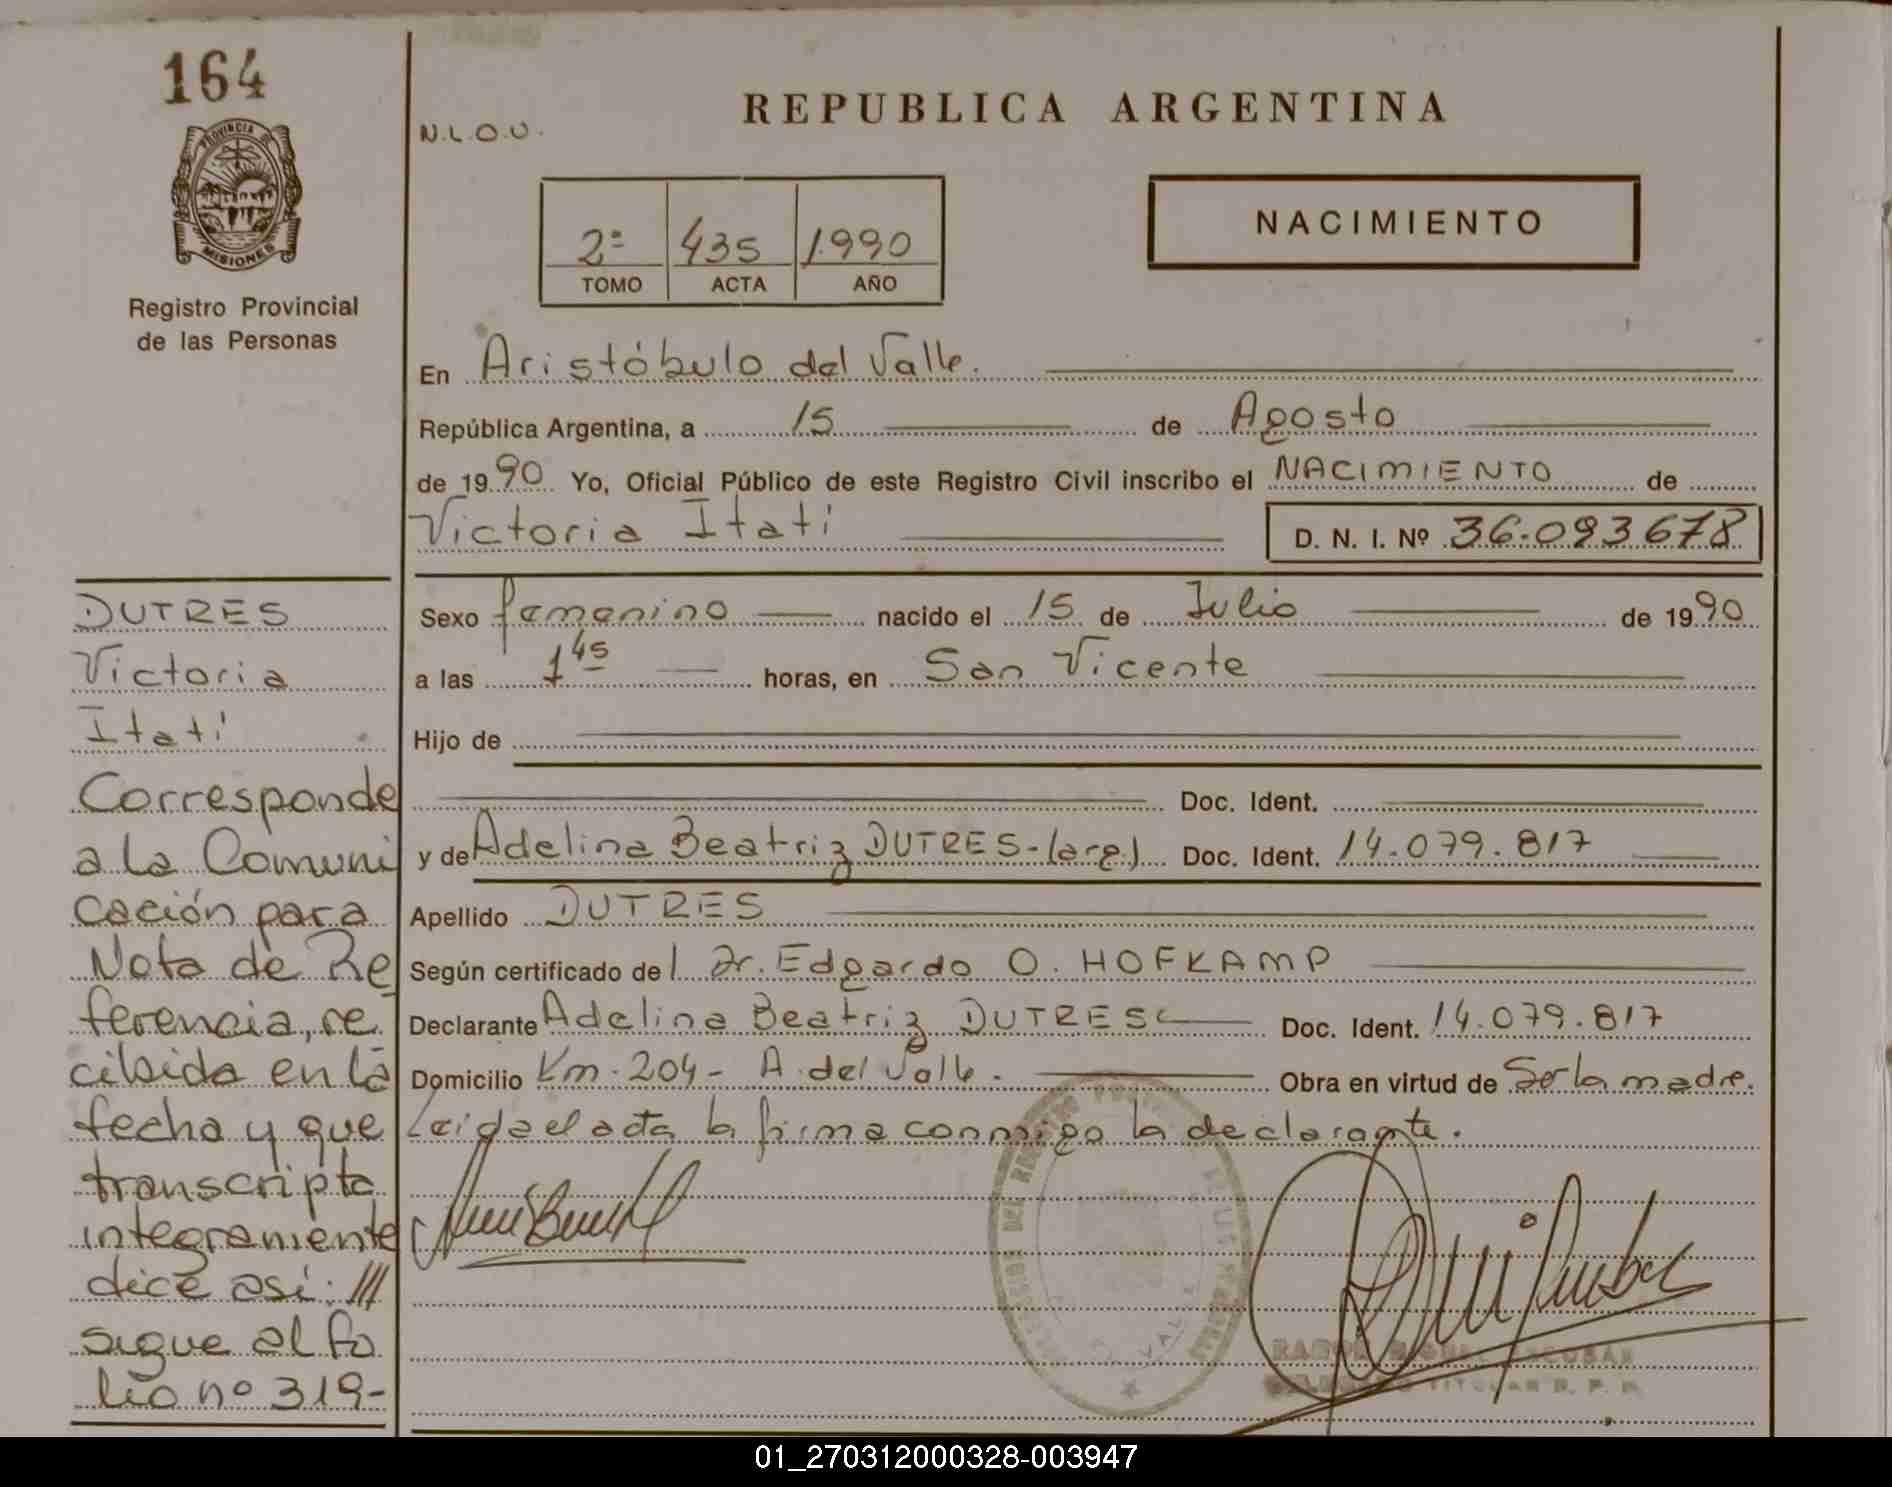 164
PROVINCIA DE
MISIONES
Registro Provincial
de las Personas
N.L.O.U.
REPUBLICA ARGENTINA
2º 435 1.990
TOMO ACTA AÑO
NACIMIENTO
En Aristóbulo del Valle.
República Argentina, a 15 de Agosto
de 1990 Yo, Oficial Público de este Registro Civil inscribo el NACIMIENTO de
Victoria Itatí
D. N. I. Nº 36.093678
Sexo femenino nacido el 15 de Julio de 1990
a las 1 45 horas, en San Vicente
Hijo de
Doc. Ident.
y de Adelina Beatriz DUTRES-(arg) Doc. Ident. 14.079.817
Apellido DUTRES
Según certificado del Dr. Edgardo O. HOFKAMP
Declarante Adelina Beatriz DUTRES Doc. Ident. 14.079.817
Domicilio Km. 204- A. del Valle. Obra en virtud de Ser la madre.
Leida el acta la firma conmigo la declarante.
DUTRES
Victoria
Itatí
Corresponde
a la Comuni
cación para
Nota de Re
ferencia, re
cibida en la
fecha y que
transcripta
integramente
dice así: ///
sigue al fo
lio nº 319-
DEL REGISTRO
VALLE
TITULAR R. P. P.
01_270312000328-003947